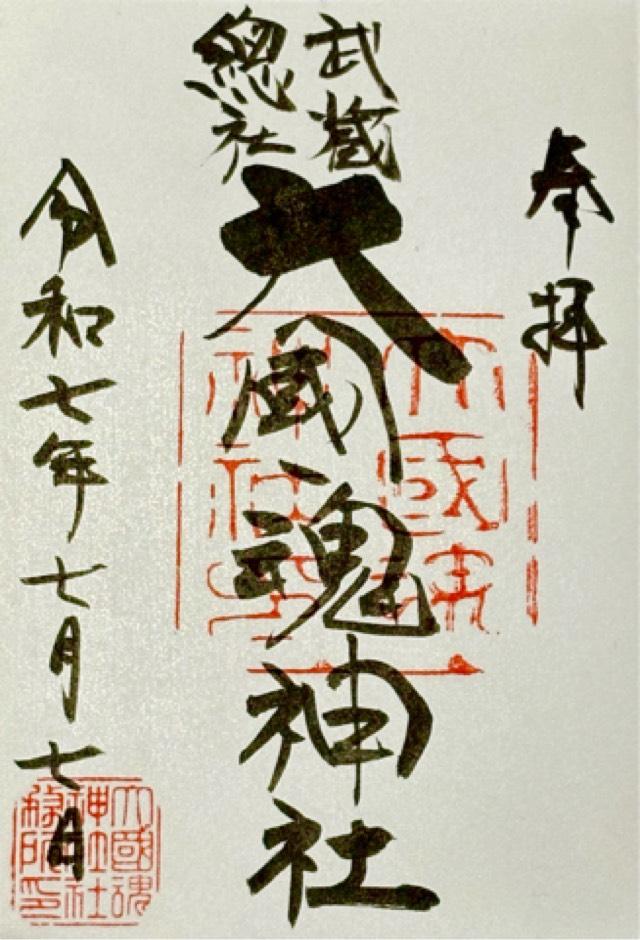 奉拝
武蔵
總社
大國魂神社
令和七年七月七日
大國魂
神社
大國魂
神社社
務所印